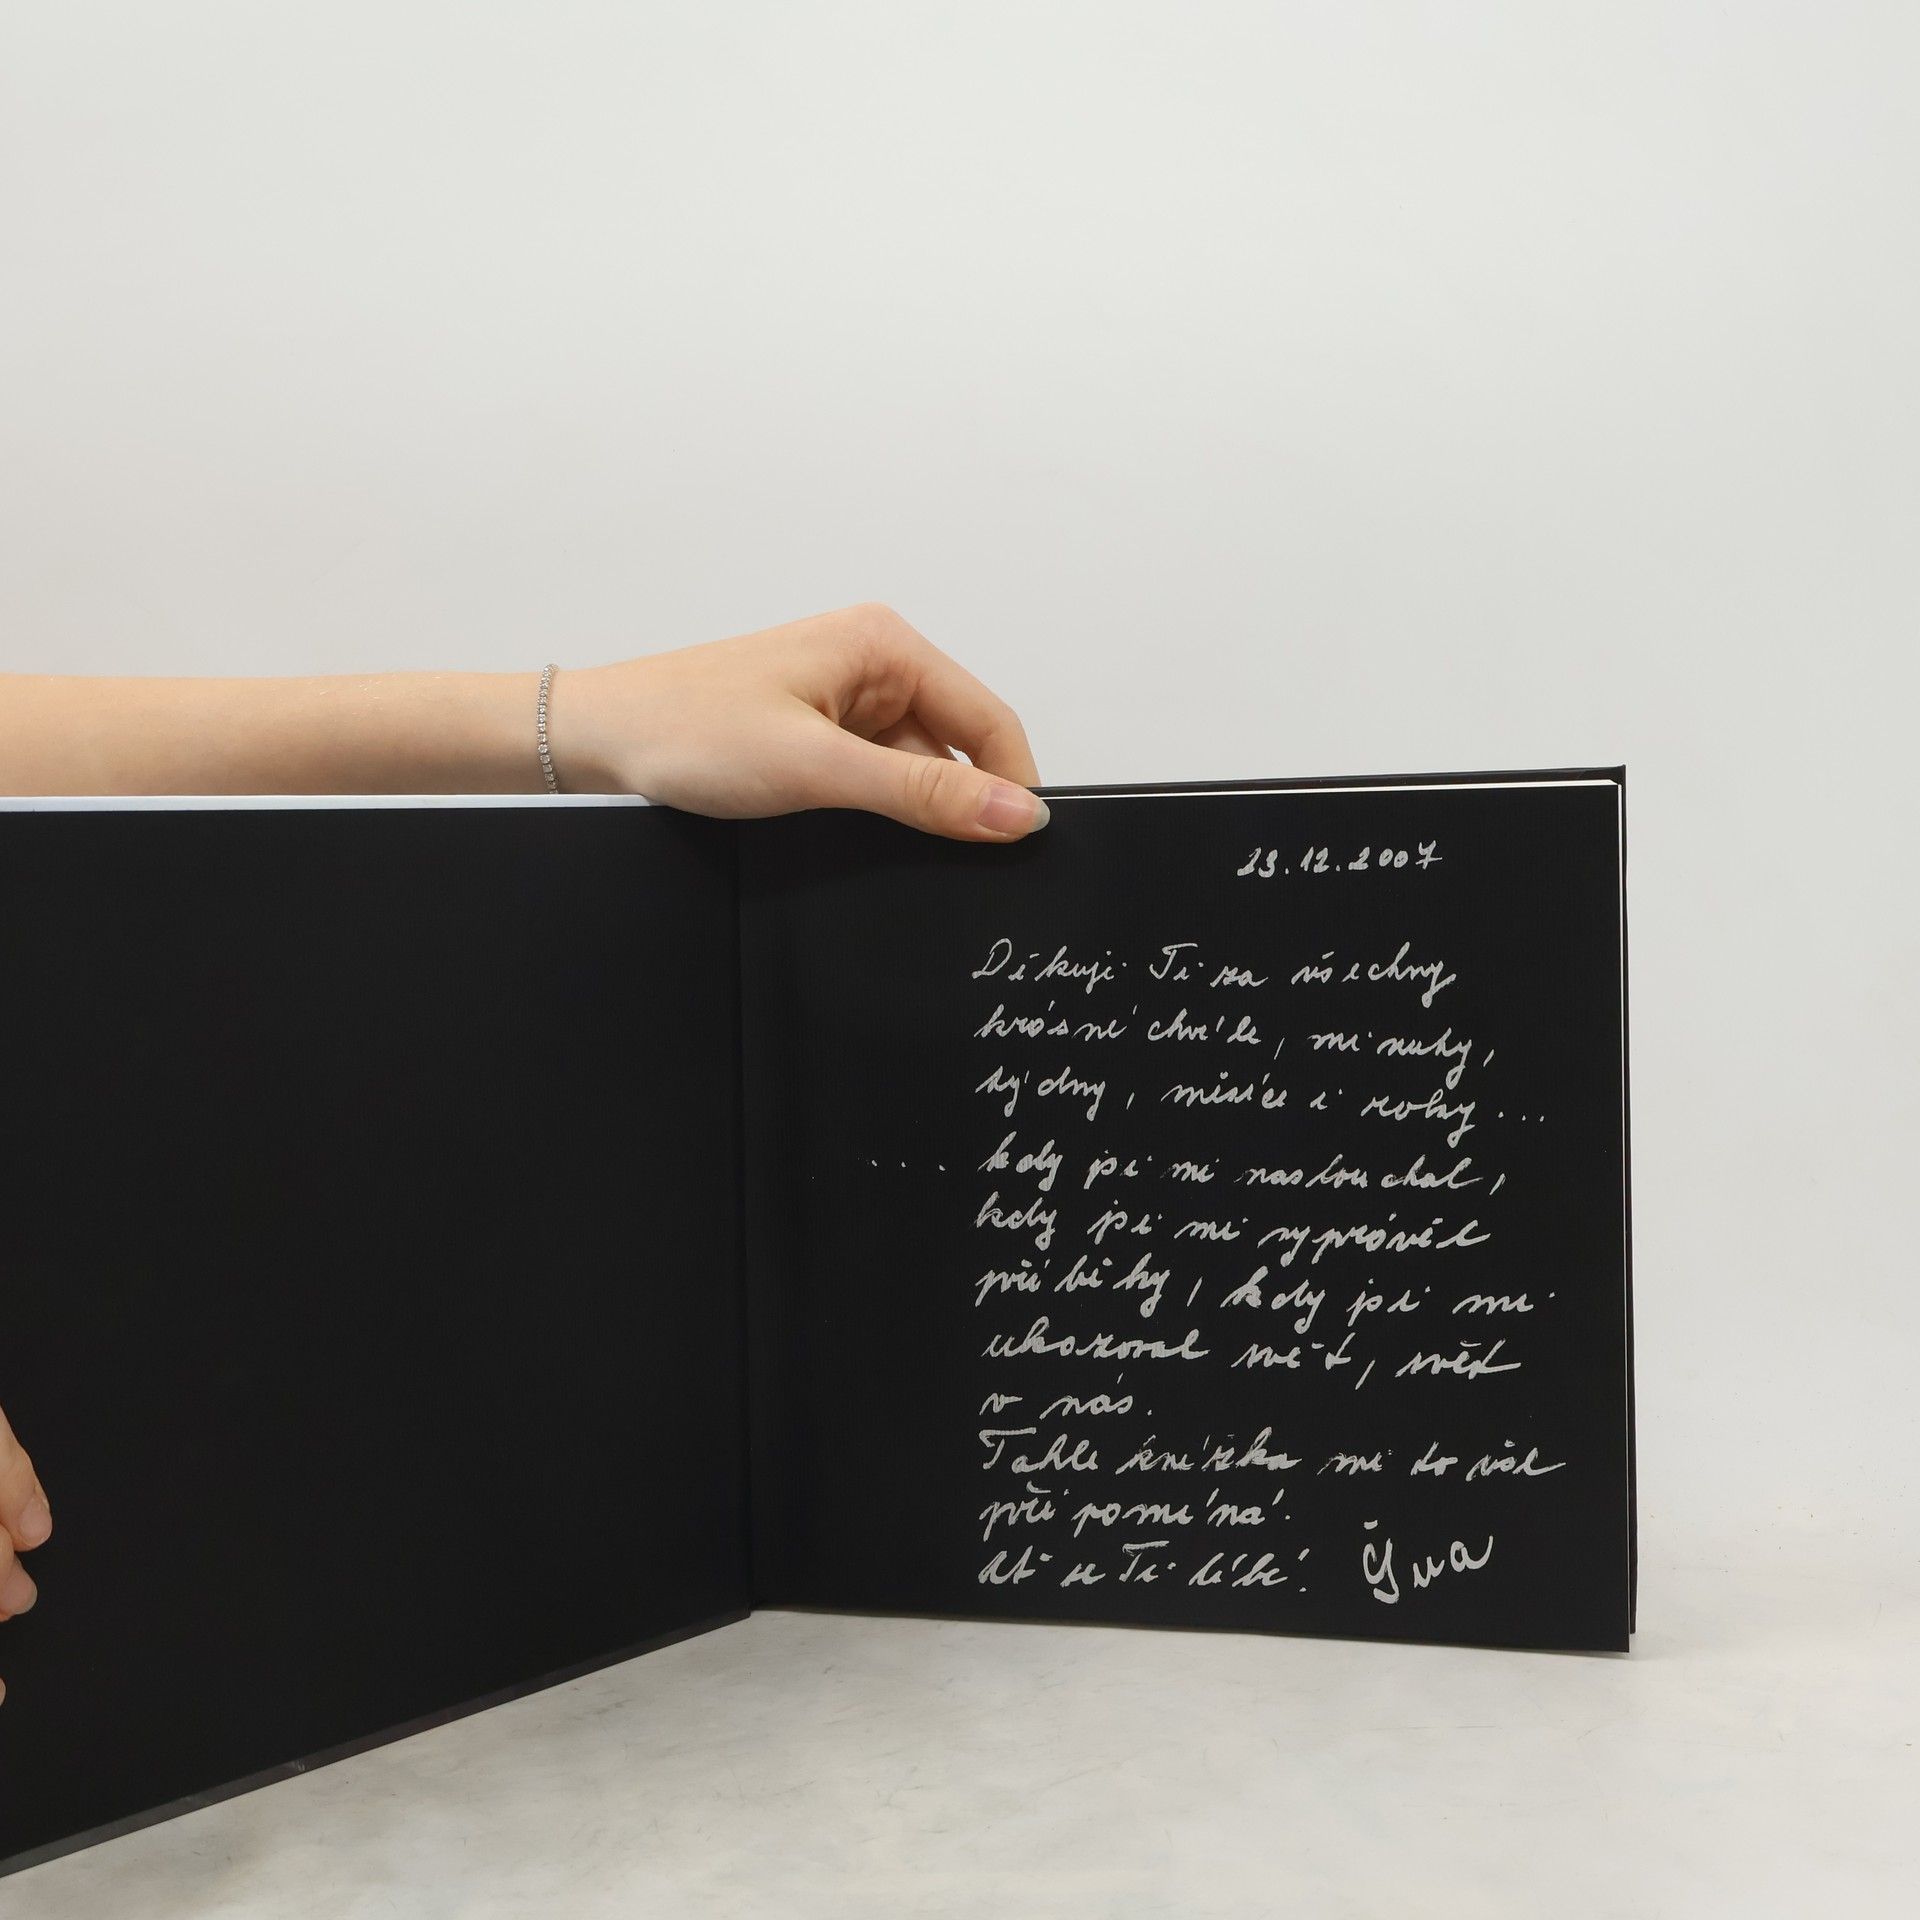 23.12.2007
Děkuji Ti za všechny
krásné chvíle, minuty,
týdny, měsíce i roky...
.... kdy jsi mi naslouchal,
kdy jsi mi vyprávěl
příběhy, kdy jsi mi
ukazoval svět, svět
v nás.
Tahle knížka mi to vše
připomíná.
Ať se Ti líbí!